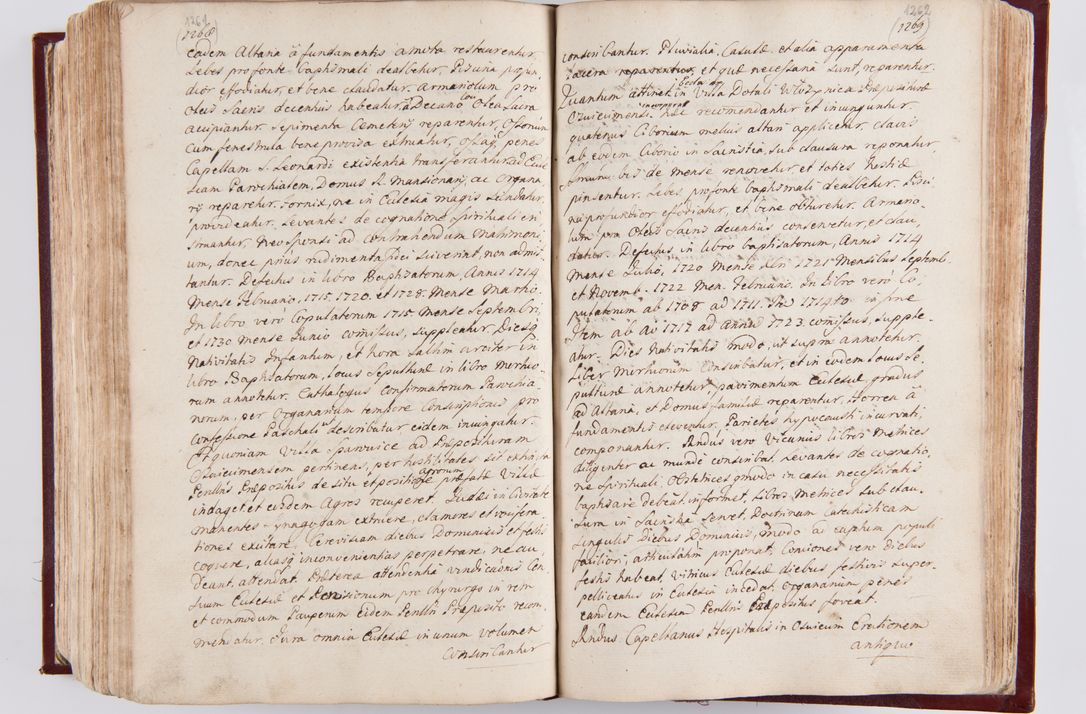 1261
(1268)
eadem Altaria à fundamentis amota restaurentur.
Lebes pro fonte baptismali dealbetur, Piscina profun
dior efodiatur, et bene claudatur. Armariolum pro
Oleis Sacris decentius habeatur, à Decano suo Olea Sacra
accipiantur. Sepimenta Cemeterij reparentur, Ossorium
cum fenestrula bene provisa extruatur, Ossaq penes
Capellam S. Leonardi existentia transferantur, ad Eccle
siam Parochialem, Domus R. Mansionarij, ac Organa
rij reparetur. Fornix, ne in Eclesia magis scindatur,
provideatur. Levantes de cognatione Spirituali in
struantur. Neo Sponsi ad contrahendum Matrimoni
um, donec prius rudimenta fidei sciverint, non admit
tantur. Defectus in libro Baptisatorum, Annis 1714
Mense Februario, 1715, 1720. et 1728. Mense Martio.
In libro verò Copulatorum 1715 Mense Septembri,
et 1730 Mense Junio comissus, suppleatur, Diesq
Nativitatis Infantum, et hora saltim circiter in
libro Baptisatorum, Locus Sepulturæ in libro Mortuo
rum annotetur. Cathalogus Confirmatorum Parochia
norum, per Organarium tempore Conscriptionis pro
Confessione Paschali describatur eidem iniungatur.
Et quoniam Villa Spurvice ad Præposituram
Osviecimensem pertinens, per hostilitates sit extincta
Perillris Præpositus de situ et positione agrorum præfatæ Villæ
indaget et eiusdem Agros recuperet. Judæi in Civitate
manentes synagogam extruere, clamores et vocifera
tiones excitare, Cerevisiam diebus Dominicis et festis
coquere, aliasq inconvenientias perpetrare, ne au
deant, attendat. Præterea attendentia vindicationis Cen
suum Eclesiæ et Provisionum pro Chyrurgo in rem
et commodum Pauperum Eidem Perillri Præposito recom
mendatur. Jura omnia Eclesiæ in unum volumen
conscribantur

1262
(1269)
conscribantur. Pluvialia, Casulæ, et alia apparamenta
sacra reparentur, et quæ necessaria sunt, reparentur.
Quantum attinet Eclesiam in Villa Dotali Włozynica Præposituræ
Osviecimensi incorporat hæc recomendantur et iniunguntur.
quatenus Ciborium melius altari applicetur, clavis
ab eodem Ciborio in Sacristia, sub clausura reponatur,
Sacrum bis de mense renovetur, et toties Hostiæ
pinsentur. Lebes pro fonte baptismali dealbetur. Pisci
na profundior efodiatur, et bene obturetur. Armario
lum pro Oleis Sacris decentius conservetur, et clau
datur. Defectus in libro baptisatorum, Annis 1714
Mense Julio, 1720 Mense 1721 Mensibus Septemb.
et Novemb. 1722 Men. Februario. In libro verò Co
pulatorum ab 1708 ad 1711. 1714to in fine
Item ab Ao 1717 ad annum 1723. comissus, supple
atur. Dies Nativitatis modo, ut supra annotetur,
Liber Mortuorum conscribatur, et in eodem locus Se
pulturæ annotetur, pavimentum Eclesiæ, gradus
ad Altaria, et Domus familiæ reparentur, Horrea à
fundamentis eleventur. Parietes hypocausti incurvati,
componantur. Rndus vero Vicarius libros Metrices
diligenter ac munde conscribat. Levantes de cognatio
ne Spirituali, Obstetrices qmodo in casu necessitatis
baptisare debeat, informet, Libros Metrices sub clau
sura in Sacristia servet, Doctrinam Catechisticam
singulis Diebus Dominicis, modo ad captum populi
faciliori, articulatim proponat, Conciones vero diebus
festis habeat. Vitricus Eclesiæ diebus festivis super
pelliceatus in Eclesia incedat. Organarium penes
eandem Eclesiam Perillris Præpositus foveat.
Rndus Capellanus Hospitalis in Osviecim Erectionem
antiquo